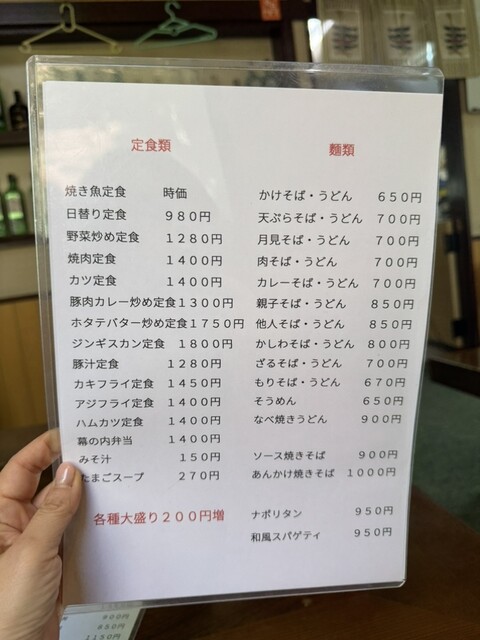 定食類
焼き魚定食 時価
日替り定食 980円
野菜炒め定食 1280円
焼肉定食 1400円
カツ定食 1400円
豚肉カレー炒め定食1300円
ホタテバター炒め定食1750円
ジンギスカン定食 1800円
豚汁定食 1280円
カキフライ定食 1450円
アジフライ定食 1400円
ハムカツ定食 1400円
幕の内弁当 1400円
みそ汁 150円
たまごスープ 270円
各種大盛り200円増
麺類
かけそば・うどん 650円
天ぷらそば・うどん 700円
月見そば・うどん 700円
肉そば・うどん 700円
カレーそば・うどん 700円
親子そば・うどん 850円
他人そば・うどん 850円
かしわそば・うどん 800円
ざるそば・うどん 700円
もりそば・うどん 670円
そうめん 650円
なべ焼きうどん 900円
ソース焼きそば 900円
あんかけ焼きそば 1000円
ナポリタン 950円
和風スパゲティ 950円
900円
850円
1150円